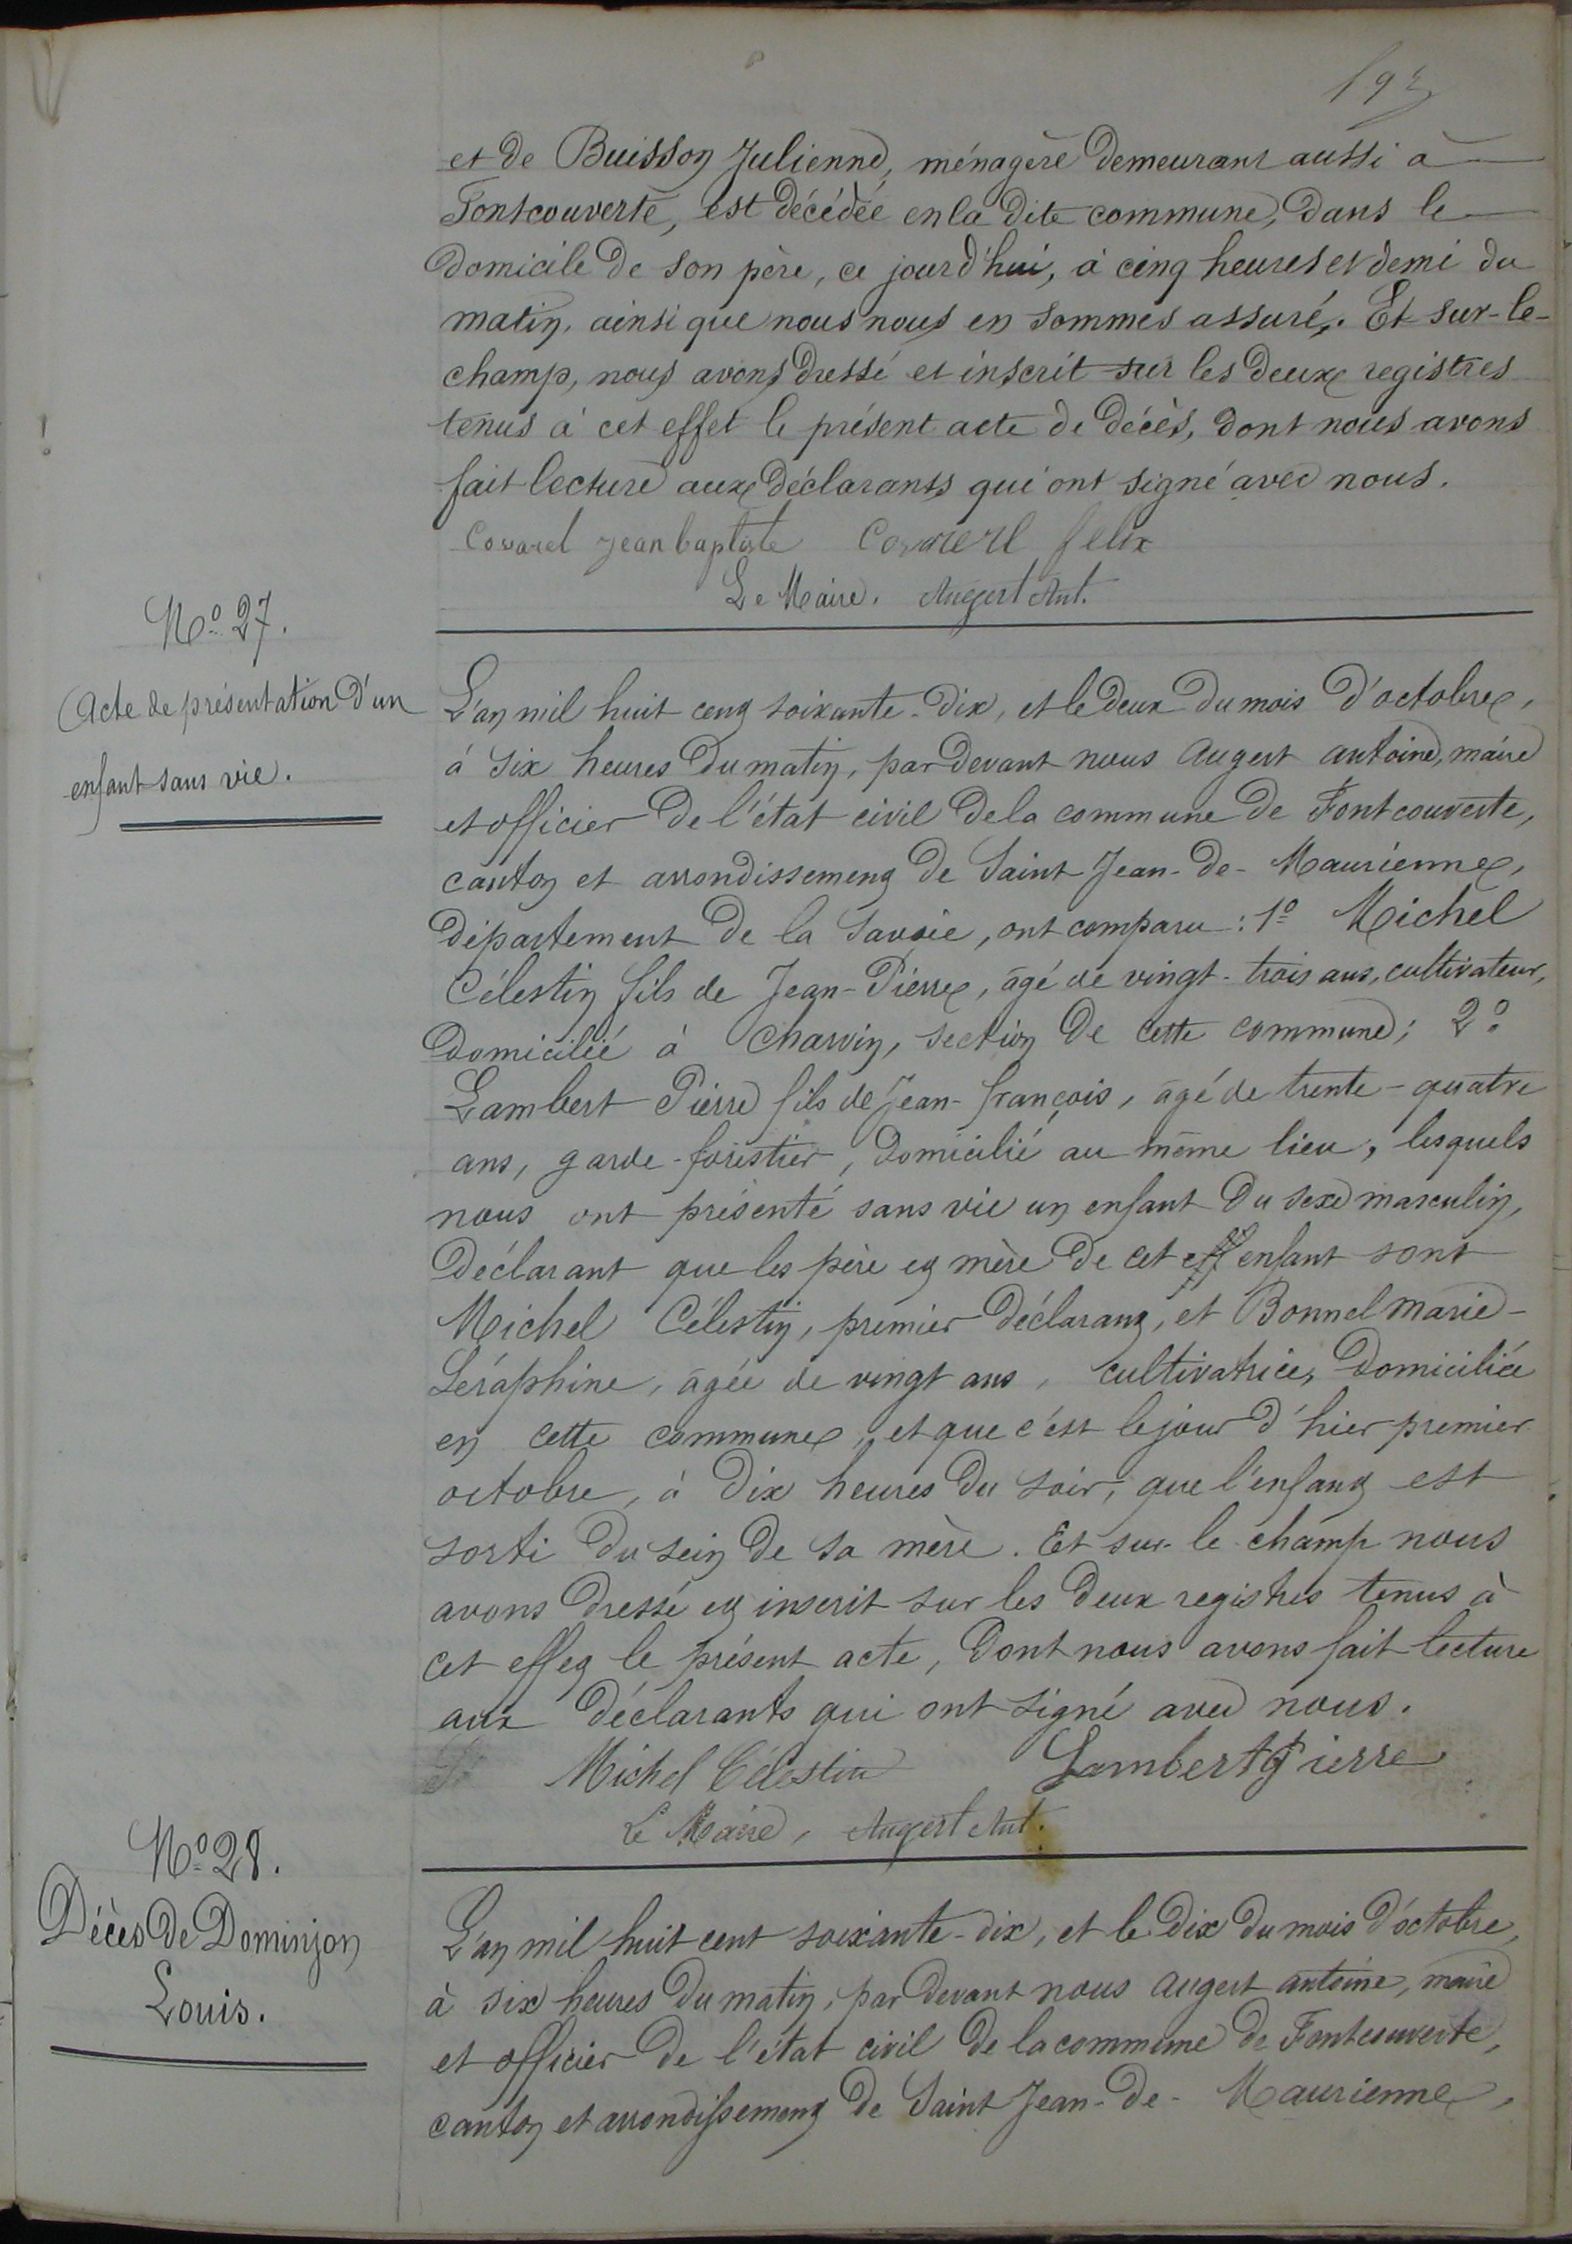 193
et de Buisson Julienne, ménagère demeurant aussi à
Fontcouverte, est décédée en la dite commune, dans le
domicile de son père, ce jourd'hui, à cinq heures et demi du
matin, ainsi que nous nous en sommes assuré. Et sur-le-
champ, nous avons dressé et inscrit sur les deux registres
tenus à cet effet le présent acte de décès, dont nous avons
fait lecture aux déclarants qui ont signé avec nous.
Covarel Jean baptiste Covarel felix
Le Maire. Augert Ant.
No. 27.
Acte de présentation d'un
enfant sans vie.
L'an mil huit cent soixante-dix, et le deux du mois d'octobre,
à six heures du matin, par devant nous Augert antoine, maire
et officier de l'état civil de la commune de Fontcouverte,
canton et arrondissement de Saint Jean-de-Maurienne,
département de la Savoie, ont comparu : 1o Michel
Célestin fils de Jean-Pierre, âgé de vingt-trois ans, cultivateur,
domicilié à Charvin, section de cette commune ; 2o
Lambert Pierre fils de Jean-françois, âgé de trente-quatre
ans, garde-forestier, domicilié au même lieu, lesquels
nous ont présenté sans vie un enfant du sexe masculin,
déclarant que les père et mère de cet enfant sont
Michel Célestin, premier déclarant, et Bonnel Marie-
Séraphine, âgée de vingt ans, cultivatrice, domiciliée
en cette commune, et que c'est le jour d'hier premier
octobre, à dix heures du soir, que l'enfant est
sorti du sein de sa mère. Et sur-le-champ nous
avons dressé et inscrit sur les deux registres tenus à
cet effet le présent acte, dont nous avons fait lecture
aux déclarants qui ont signé avec nous.
Michel Célestin Lambert Pierre
Le Maire, Augert Ant.
No. 28.
Décès de Dominjon
Louis.
L'an mil huit cent soixante-dix, et le dix du mois d'octobre,
à six heures du matin, par devant nous Augert antoine, maire
et officier de l'état civil de la commune de Fontcouverte,
canton et arrondissement de Saint Jean-de-Maurienne,